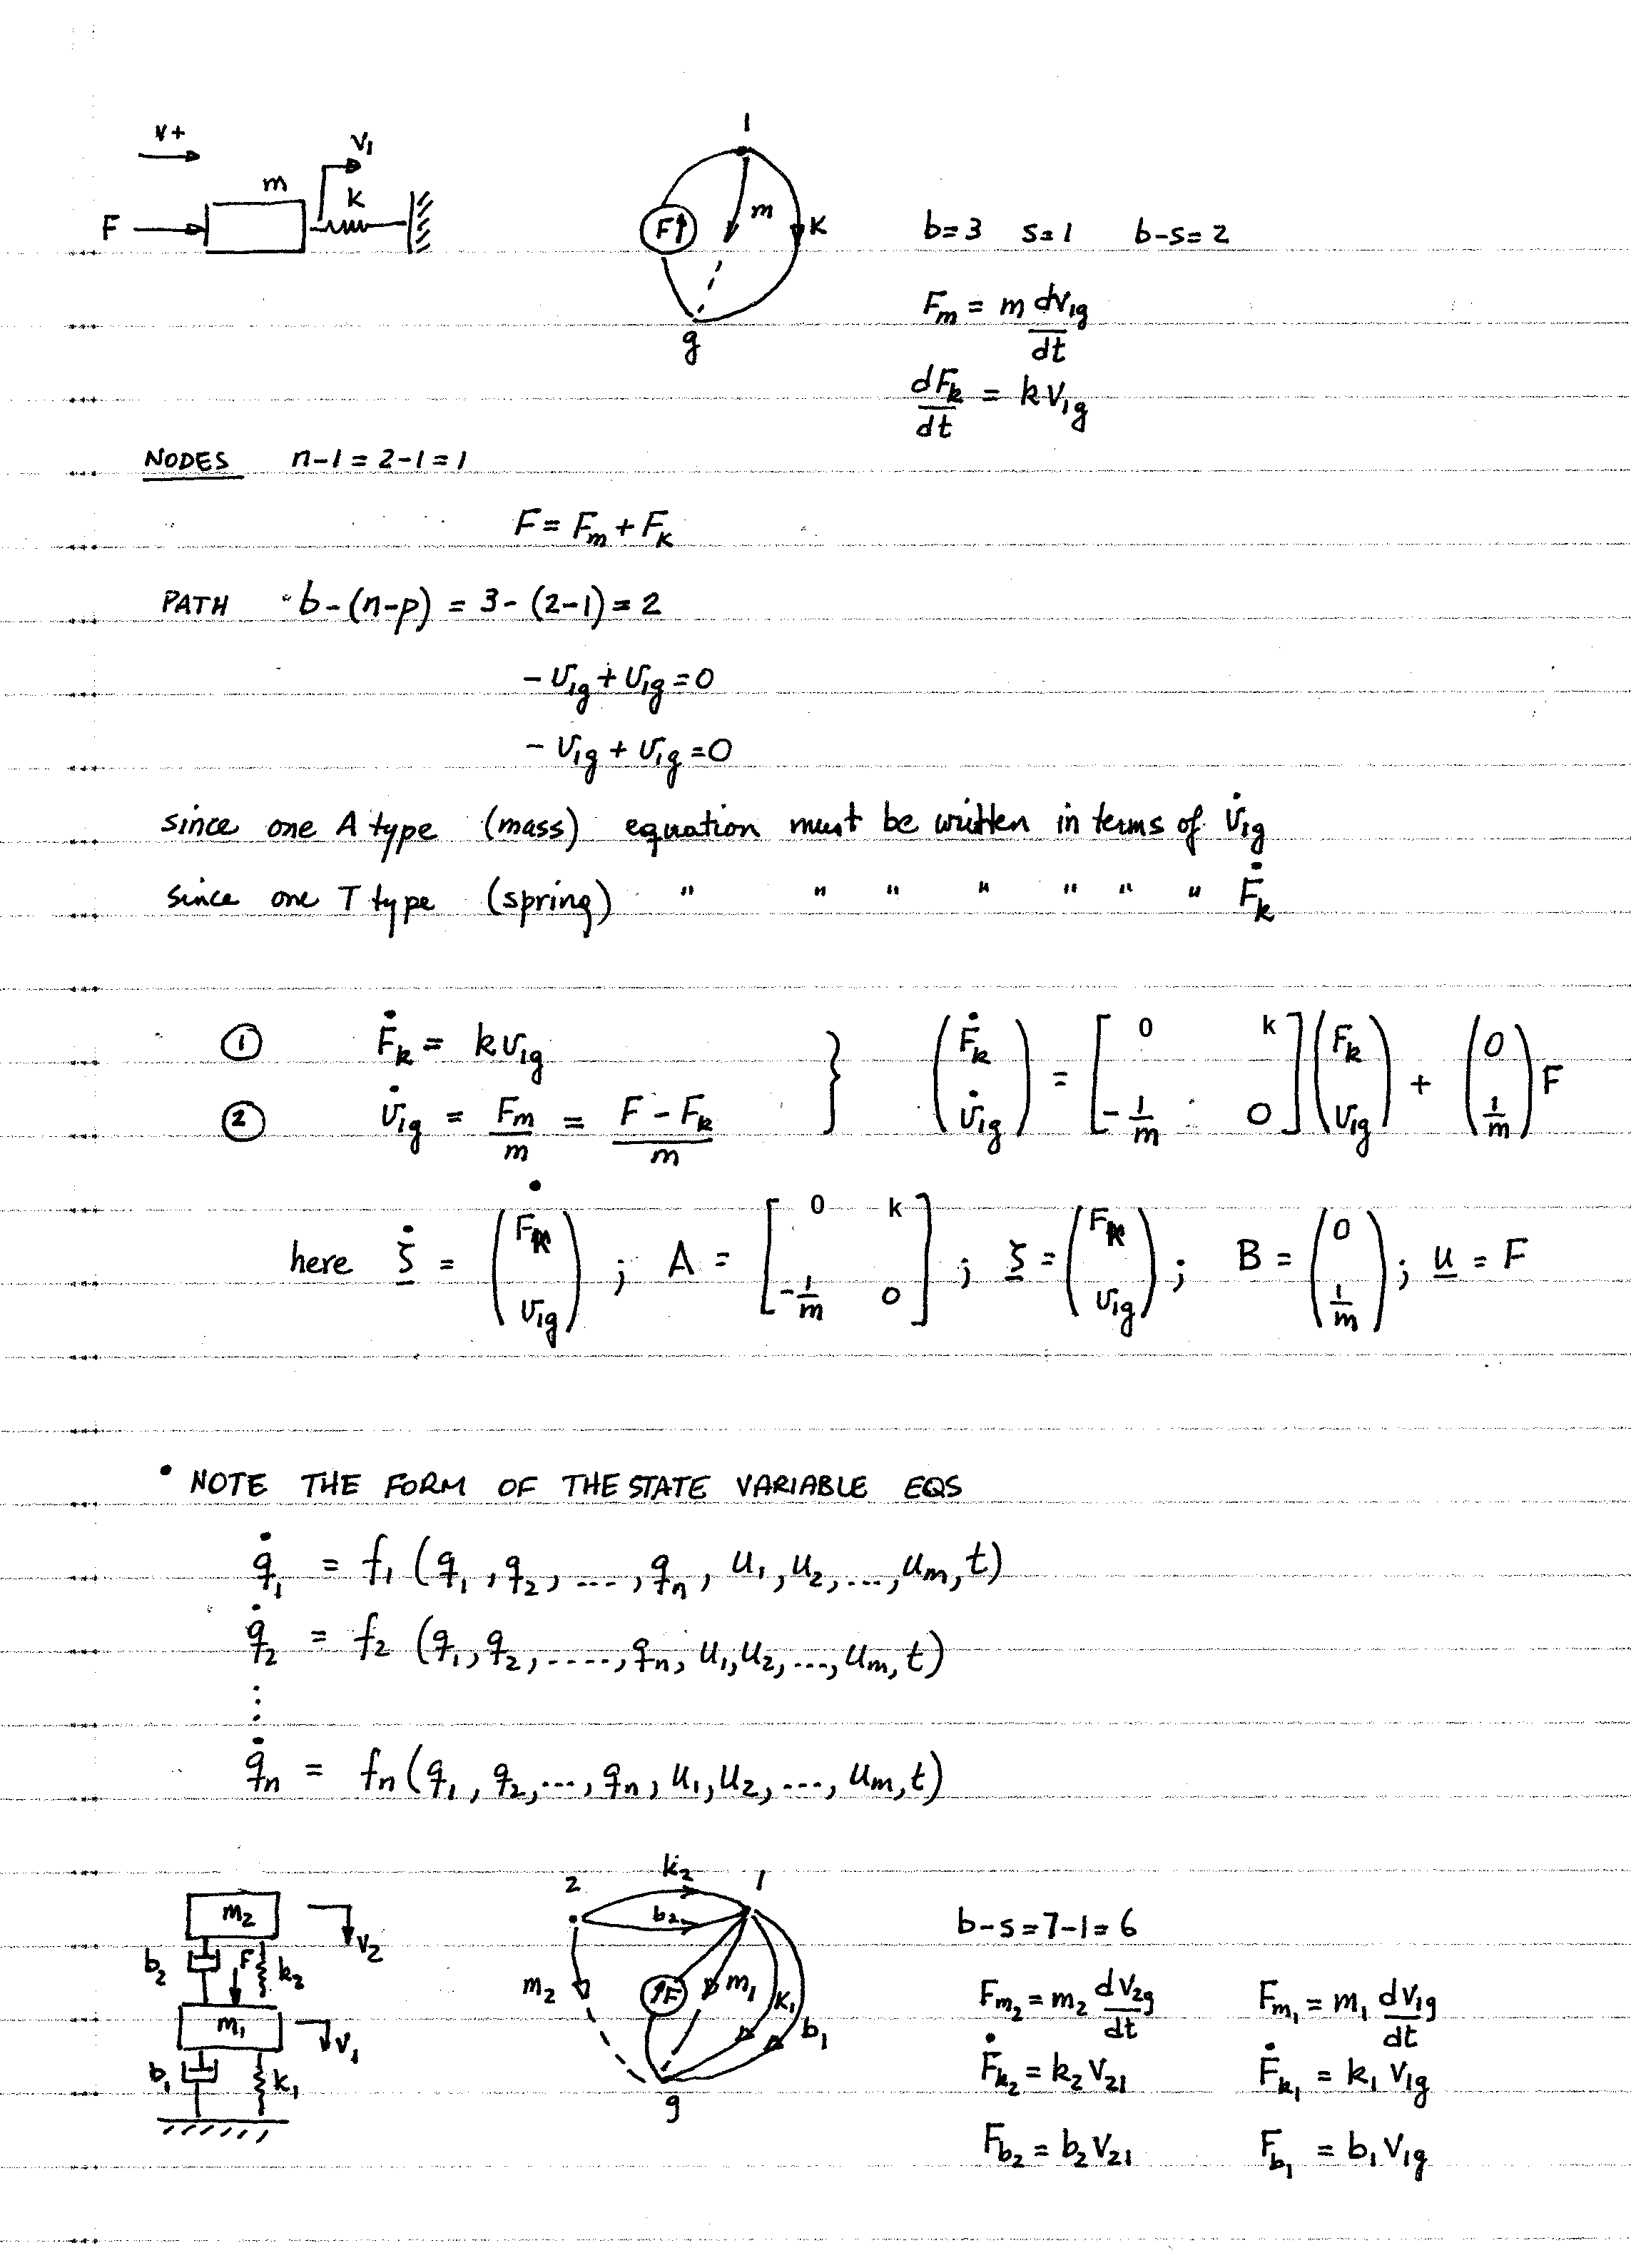 v+
v₁
m
k
F
1
F↑ m k
g
b=3 s=1 b-s=2
F_m = m dv₁g/dt
dF_k/dt = k v₁g
NODES n-1 = 2-1 = 1
F = F_m + F_k
PATH b-(n-p) = 3-(2-1) = 2
-v₁g + v₁g = 0
-v₁g + v₁g = 0
since one A type (mass) equation must be written in terms of v̇₁g
since one T type (spring) " " " " " " " Ḟ_k
① Ḟ_k = k v₁g } (Ḟ_k ; v̇₁g) = [0 k ; -1/m 0] (F_k ; v₁g) + (0 ; 1/m) F
② v̇₁g = F_m/m = (F - F_k)/m
here ξ̇ = (Ḟ_k ; v₁g) ; A = [0 k ; -1/m 0] ; ξ = (F_k ; v₁g) ; B = (0 ; 1/m) ; u = F
• NOTE THE FORM OF THE STATE VARIABLE EQS
q̇₁ = f₁ (q₁, q₂, ..., q_n, u₁, u₂, ..., u_m, t)
q̇₂ = f₂ (q₁, q₂, ...., q_n, u₁, u₂, ..., u_m, t)
⋮
q̇_n = f_n (q₁, q₂, ..., q_n, u₁, u₂, ..., u_m, t)
m₂
v₂
b₂ F k₂
m₁
v₁
b₁ k₁
2 k₂ 1
b₂
m₂ ↑F m₁ k₁ b₁
g
b-s = 7-1 = 6
F_m₂ = m₂ dv₂g/dt F_m₁ = m₁ dv₁g/dt
Ḟ_k₂ = k₂ v₂₁ Ḟ_k₁ = k₁ v₁g
F_b₂ = b₂ v₂₁ F_b₁ = b₁ v₁g